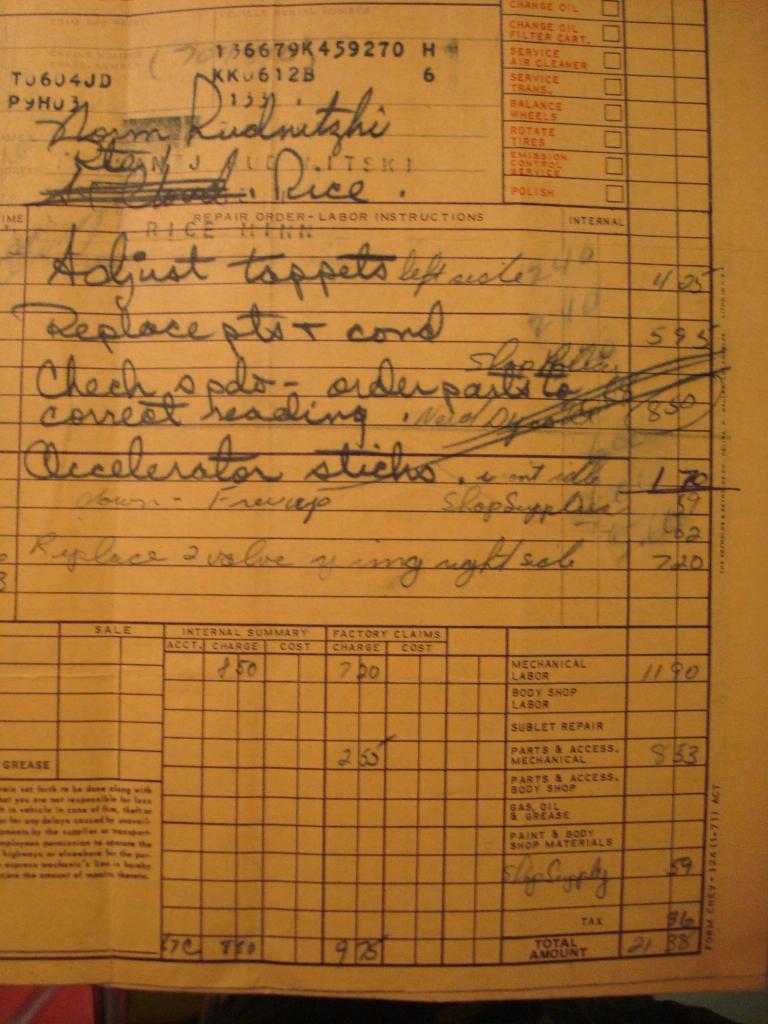 CHANGE OIL
CHANGE OIL FILTER CART.
SERVICE AIR CLEANER
SERVICE TRANS.
BALANCE WHEELS
ROTATE TIRES
EMISSION CONTROL SERVICE
POLISH
136679K459270 H
TU604JD KKU612B 6
P9HU3 1331
Norm Rudnitzhi
Rice .
RICE MINN
REPAIR ORDER-LABOR INSTRUCTIONS INTERNAL
Adjust tappets left side 4 25
Replace pts + cond 5 95
Check spdo - order parts to
correct reading . 8 50
Accelerator sticks . wont idle 1 70
down - Freeup Shop Supplies 59
Replace 2 valve right side 7 20
SALE
INTERNAL SUMMARY FACTORY CLAIMS
ACCT. CHARGE COST CHARGE COST
8 50 7 20
MECHANICAL LABOR 11 90
BODY SHOP LABOR
SUBLET REPAIR
2 55
PARTS & ACCESS. MECHANICAL 8 53
GREASE
PARTS & ACCESS. BODY SHOP
GAS, OIL & GREASE
PAINT & BODY SHOP MATERIALS
Shop Supply 59
TAX 86
9 75
TOTAL AMOUNT 21 88
ein set forth to be done along with
hat you are not responsible for loss
t in vehicle in case of fire, theft or
or for any delays caused by unavail-
pments by the supplier or transport-
mployees permission to operate the
highways or elsewhere for the pur-
express mechanic's lien is hereby
cure the amount of repairs thereto.
FORM CHEV-124 (1-71) ACT